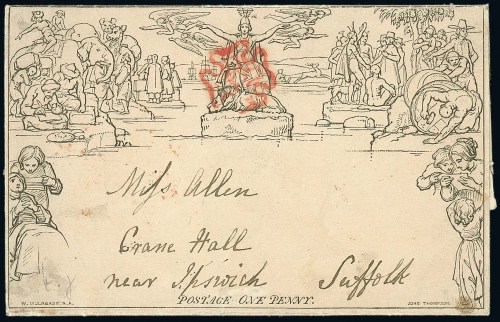 Miss Allen
Crane Hall
near Ipswich Suffolk
POSTAGE ONE PENNY.
W. MULREADY. R.A.
JOHN THOMPSON